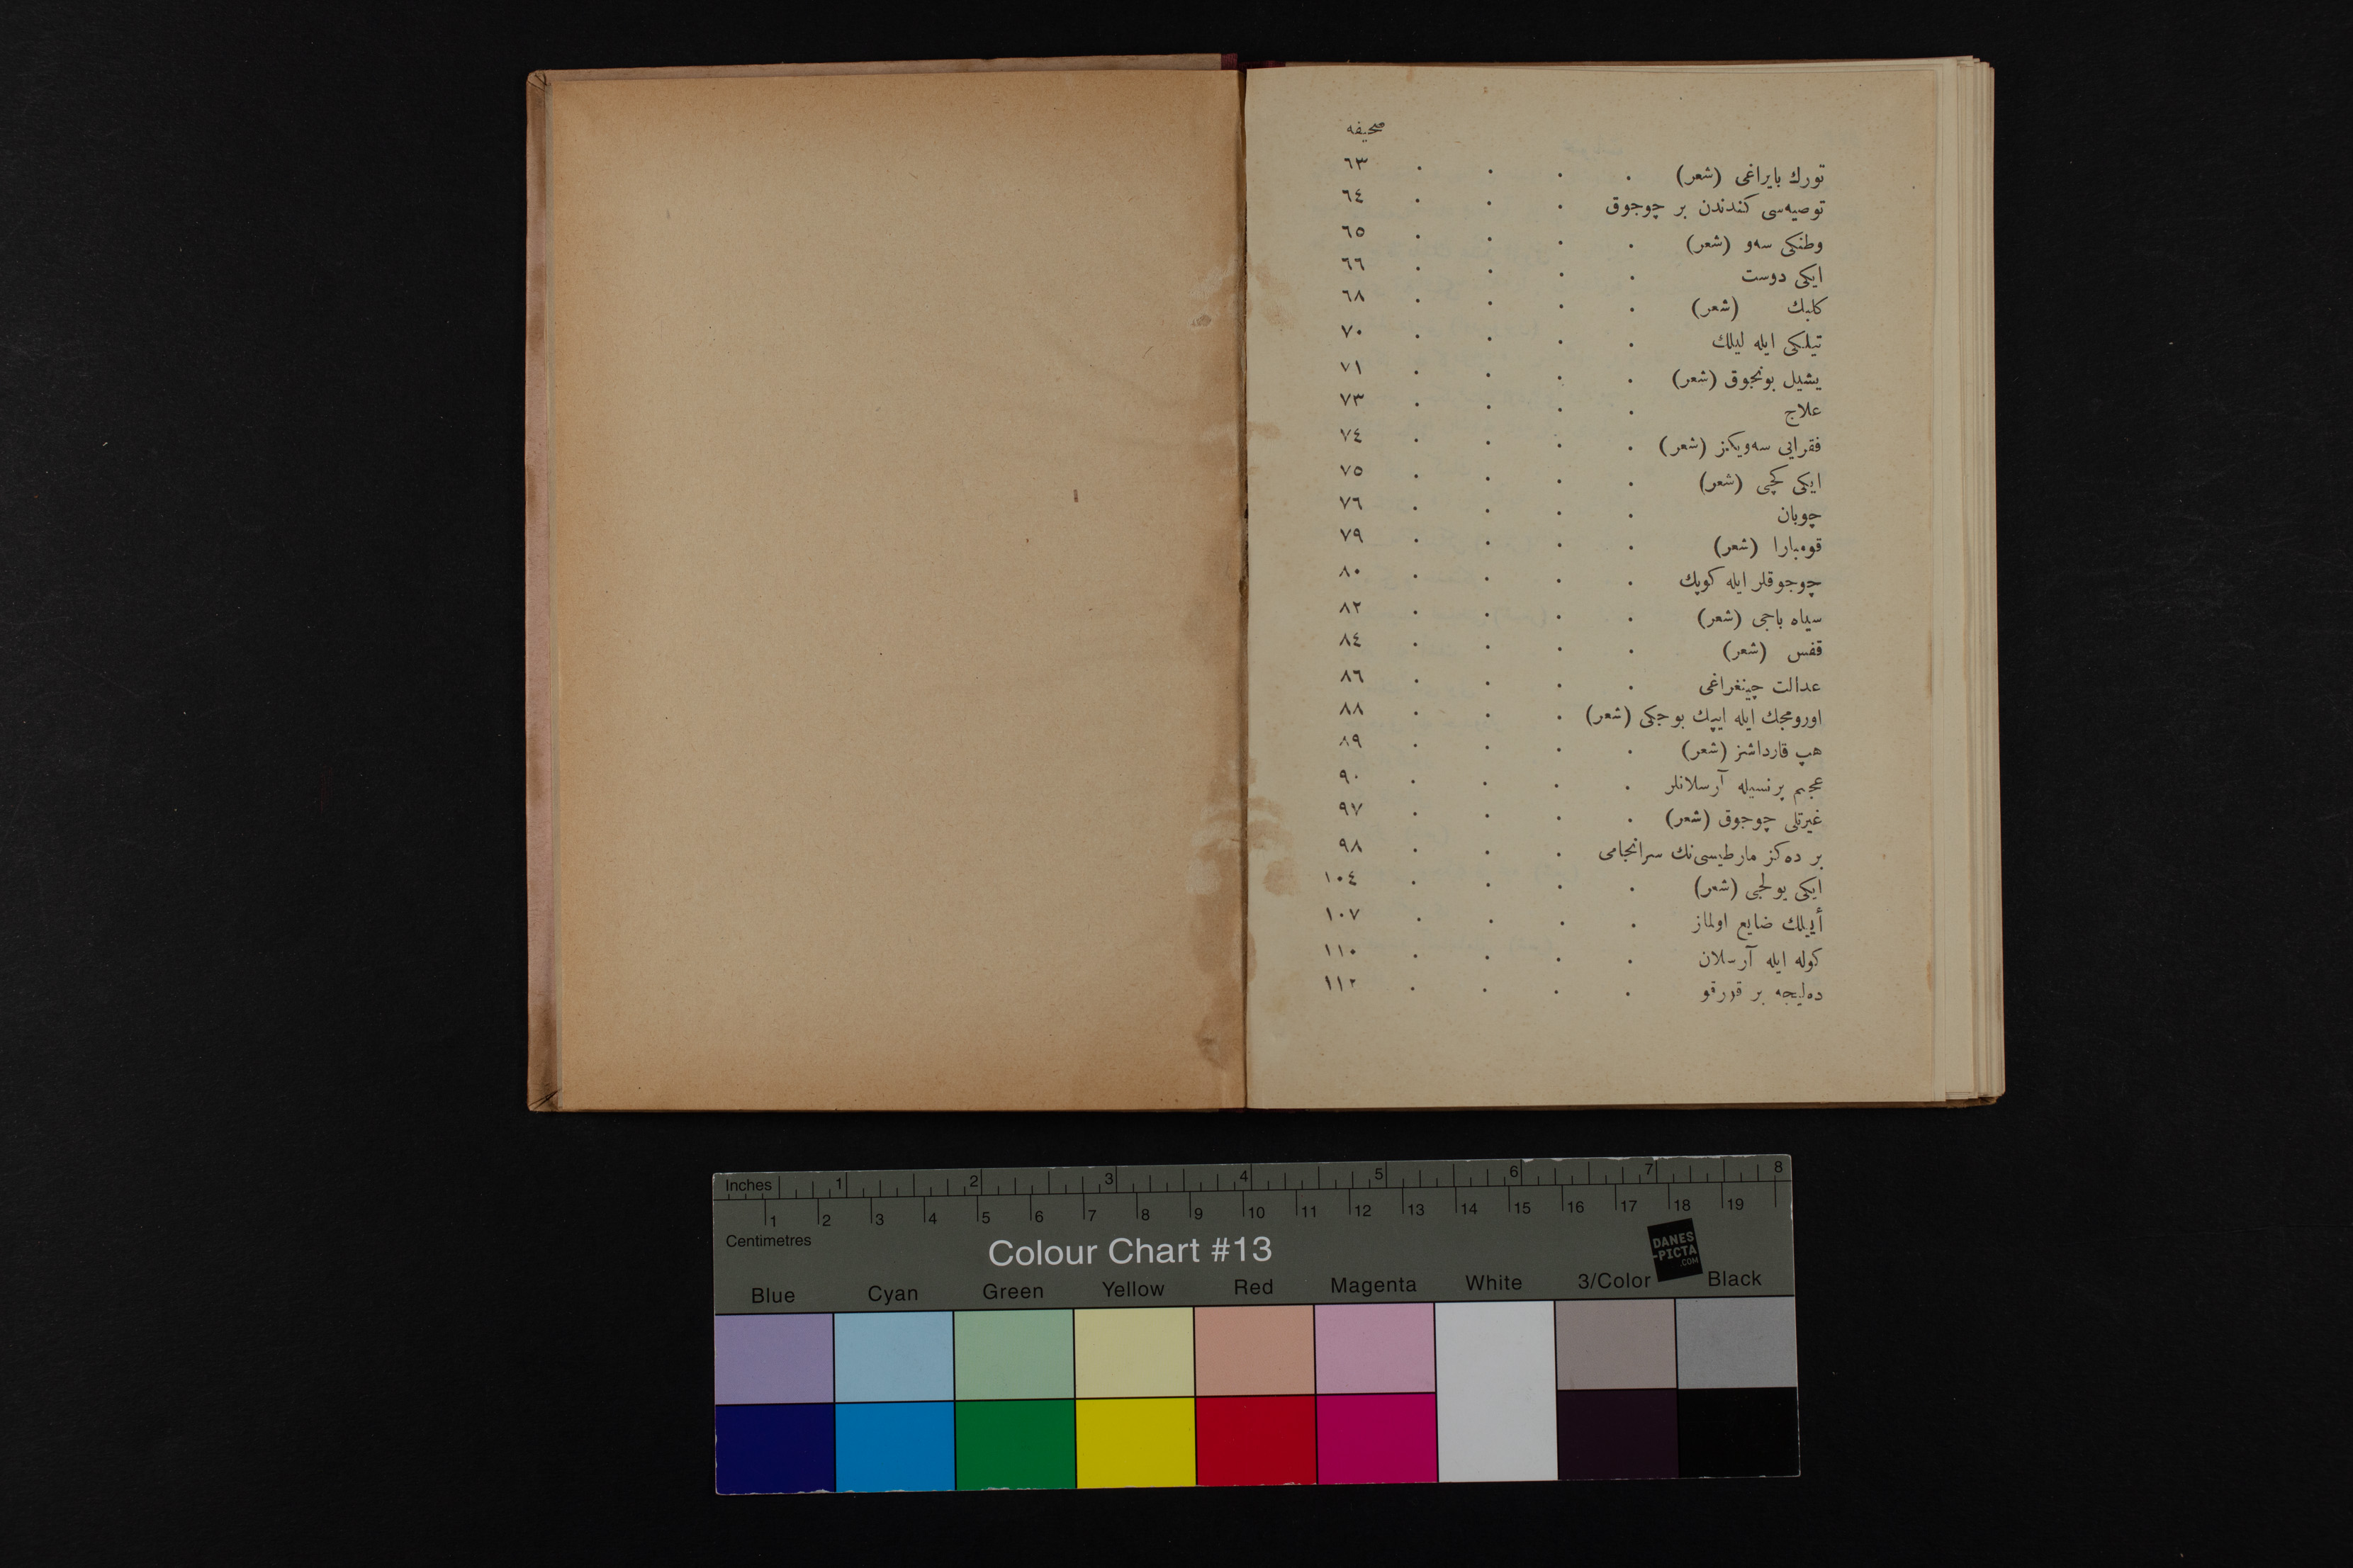 صحیفه
تورك بایراغی (شعر) . . . . ٦٣
توصیه‌سی كندندن بر چوجوق . . . ٦٤
وطنكی سه‌و (شعر) . . . . ٦٥
ایكی دوست . . . . ٦٦
كلبك (شعر) . . . . ٦٨
تیلكی ایله لیلك . . . . ٧٠
یشیل بونجوق (شعر) . . . . ٧١
علاج . . . . ٧٣
فقرایی سه‌ویكز (شعر) . . . . ٧٤
ایكی كچی (شعر) . . . . ٧٥
چوبان . . . . ٧٦
قومبارا (شعر) . . . . ٧٩
چوجوقلر ایله كوپك . . . . ٨٠
سیاه باجی (شعر) . . . . ٨٢
قفس (شعر) . . . . ٨٤
عدالت چینغراغی . . . . ٨٦
اورومجك ایله ایپك بوجكی (شعر) . . . ٨٨
هپ قارداشز (شعر) . . . . ٨٩
عجم پرنسیله آرسلانلر . . . . ٩٠
غیرتلی چوجوق (شعر) . . . . ٩٧
بر ده‌كز مارطیسی‌نك سرانجامی . . . ٩٨
ایكی یولجی (شعر) . . . . ١٠٤
أییلك ضایع اولماز . . . . ١٠٧
كوله ایله آرسلان . . . . ١١٠
ده‌لیجه بر قورقو . . . . ١١٢
Inches 1 2 3 4 5 6 7 8
1 2 3 4 5 6 7 8 9 10 11 12 13 14 15 16 17 18 19
Centimetres
Colour Chart #13
DANES
-PICTA
.COM
Blue Cyan Green Yellow Red Magenta White 3/Color Black